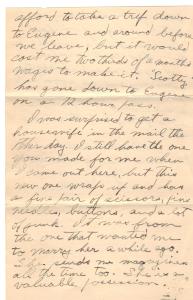 afford to take a trip down
to Eugene and around before
we leave, but it would
cost me two thirds of a months
wages to make it. Scotty
has gone down to Eugene
on a 12 hour pass.
I was surprised to get a
housewife in the mail the
other day. I still have the one
you made for me when
I came out here, but this
new one wraps up and has
a fine pair of scissors, fine
needles, buttons, and a lot
of junk. It was from
the one that wanted me
to marry her a while ago.
She sends me magazines
all the time too. She is a
valuable possession.